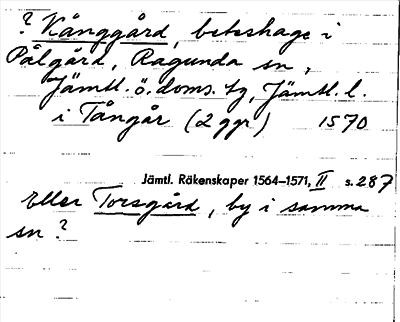 ? Kånggård, beteshage i
Pålgård, Ragunda sn,
Jämtl. ö. doms. tg, Jämtl. l.
i Tångår (2 ggr) 1570
Jämtl. Räkenskaper 1564–1571, II s. 287
Eller Torsgård, by i samma
sn?